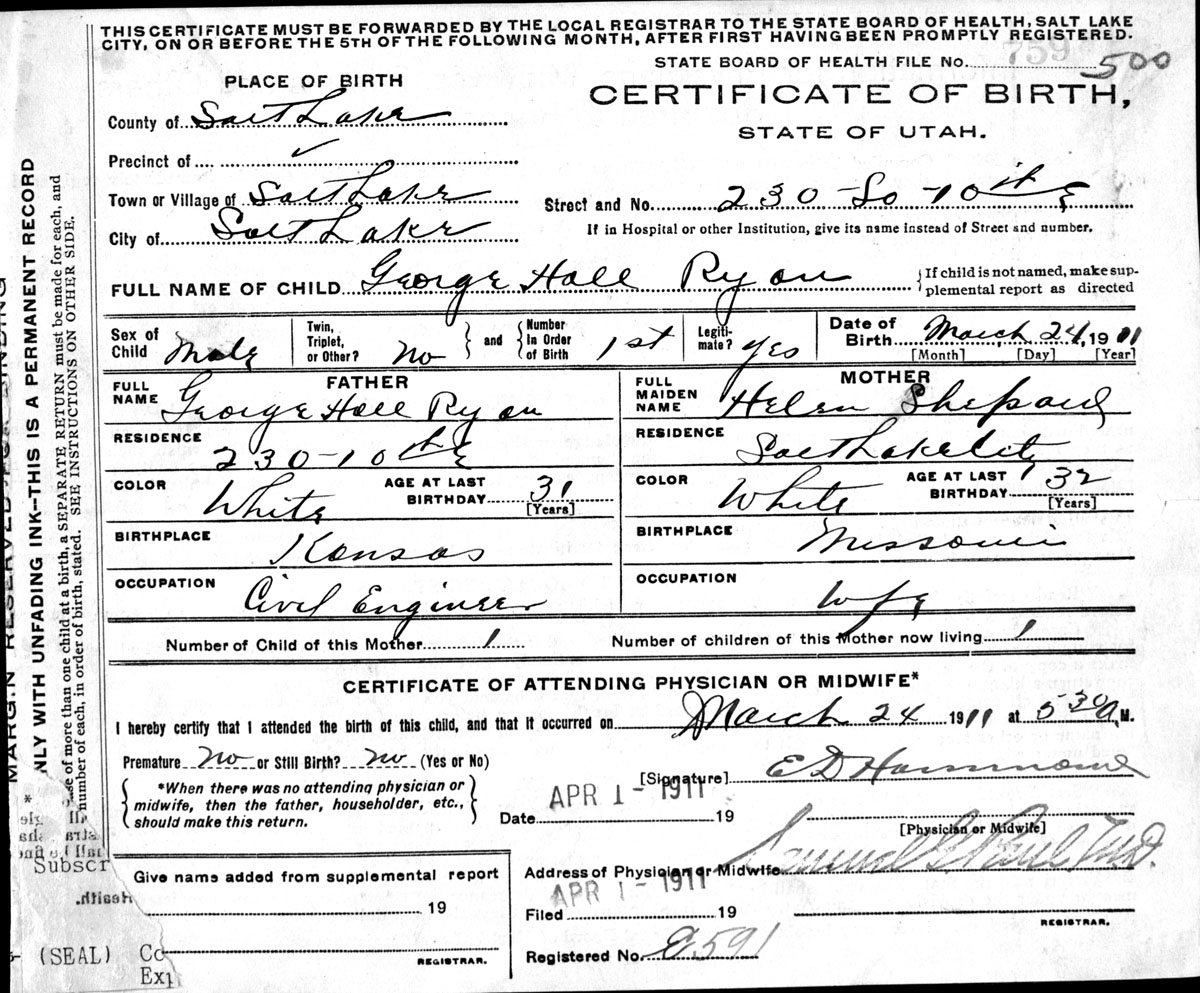 THIS CERTIFICATE MUST BE FORWARDED BY THE LOCAL REGISTRAR TO THE STATE BOARD OF HEALTH, SALT LAKE
CITY, ON OR BEFORE THE 5TH OF THE FOLLOWING MONTH, AFTER FIRST HAVING BEEN PROMPTLY REGISTERED.
STATE BOARD OF HEALTH FILE No. 759 500
PLACE OF BIRTH
CERTIFICATE OF BIRTH,
STATE OF UTAH.
County of Salt Lake
Precinct of ✓
Town or Village of Salt Lake
Street and No. 230 So 10th E
City of Salt Lake
If in Hospital or other Institution, give its name instead of Street and number.
FULL NAME OF CHILD George Hall Ryan
{If child is not named, make sup-
plemental report as directed
Sex of Child Male
Twin, Triplet, or Other? No } and { Number In Order of Birth 1st
Legiti-mate? Yes
Date of Birth March 24, 1911
[Month] [Day] [Year]
FATHER
FULL NAME George Hall Ryan
MOTHER
FULL MAIDEN NAME Helen Shepard
RESIDENCE 230-10th E
RESIDENCE Salt Lake City
COLOR White AGE AT LAST BIRTHDAY 31 [Years]
COLOR White AGE AT LAST BIRTHDAY 32 [Years]
BIRTHPLACE Kansas
BIRTHPLACE Missouri
OCCUPATION Civil Engineer
OCCUPATION Wife
Number of Child of this Mother 1 Number of children of this Mother now living 1
CERTIFICATE OF ATTENDING PHYSICIAN OR MIDWIFE*
I hereby certify that I attended the birth of this child, and that it occurred on March 24 1911 at 5 30 A. M.
Premature No or Still Birth? No (Yes or No)
{ *When there was no attending physician or
midwife, then the father, householder, etc.,
should make this return. }
[Signature] E D Hammond
Date APR 1 - 1911 19
[Physician or Midwife]
Address of Physician or Midwife
Samuel G. Paul, M.D.
Give name added from supplemental report
19
REGISTRAR.
Filed APR 1 - 1911 19
REGISTRAR.
Registered No. E591
MARGIN RESERVED FOR BINDING
NLY WITH UNFADING INK—THIS IS A PERMANENT RECORD
* se of more than one child at a birth, a SEPARATE RETURN must be made for each, and
number of each, in order of birth, stated. SEE INSTRUCTIONS ON OTHER SIDE.
Subscr
Health.
(SEAL) Co
Exp